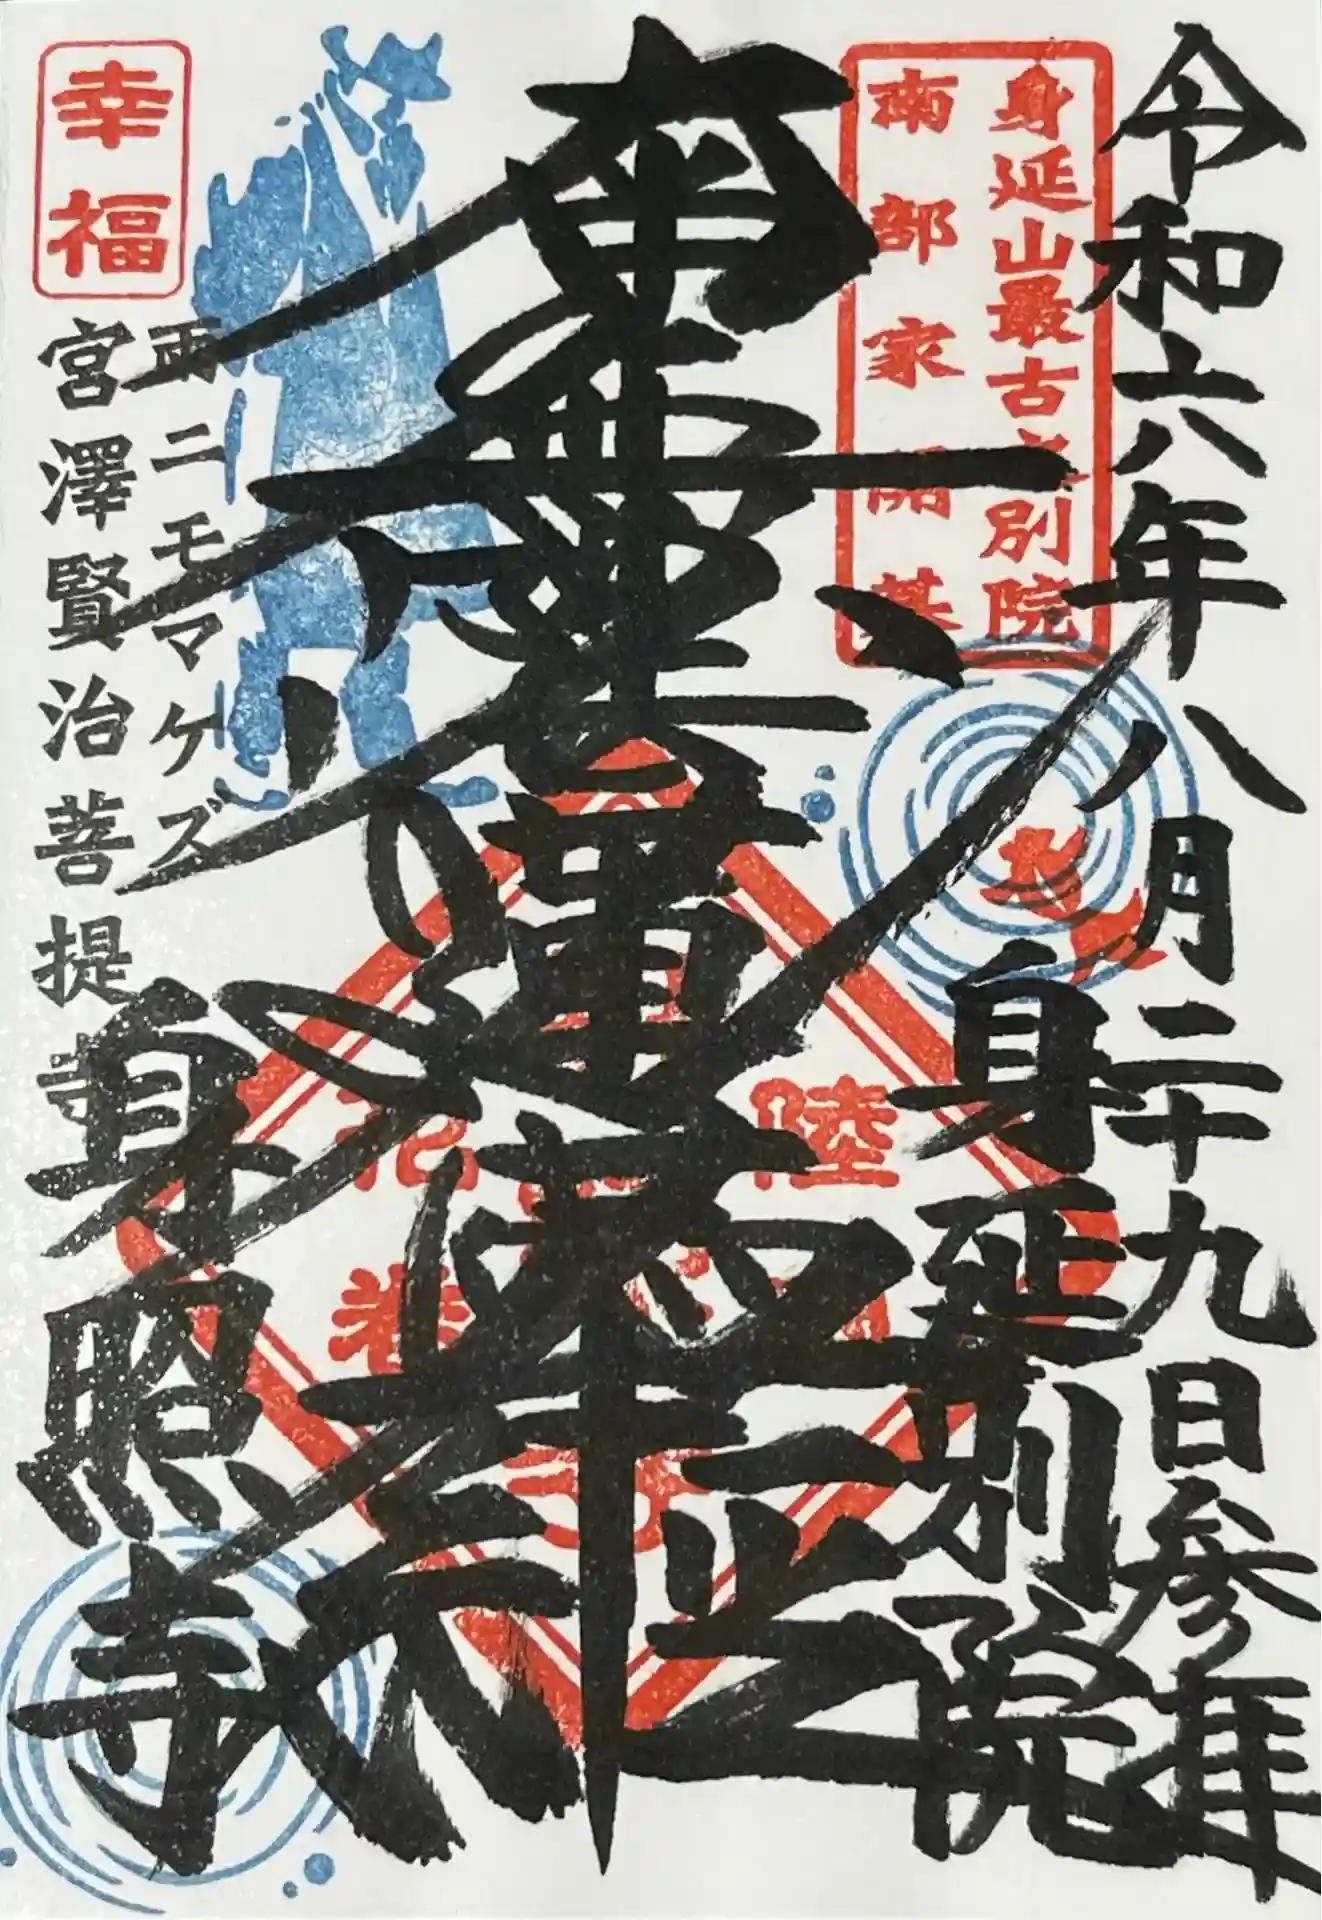 令和六年八月二十九日参拝
身延山最古之別院
南部家開基
身延別院
南無妙法蓮華経
陸
花巻
幸福
雨ニモマケズ
宮澤賢治菩提寺
身照寺